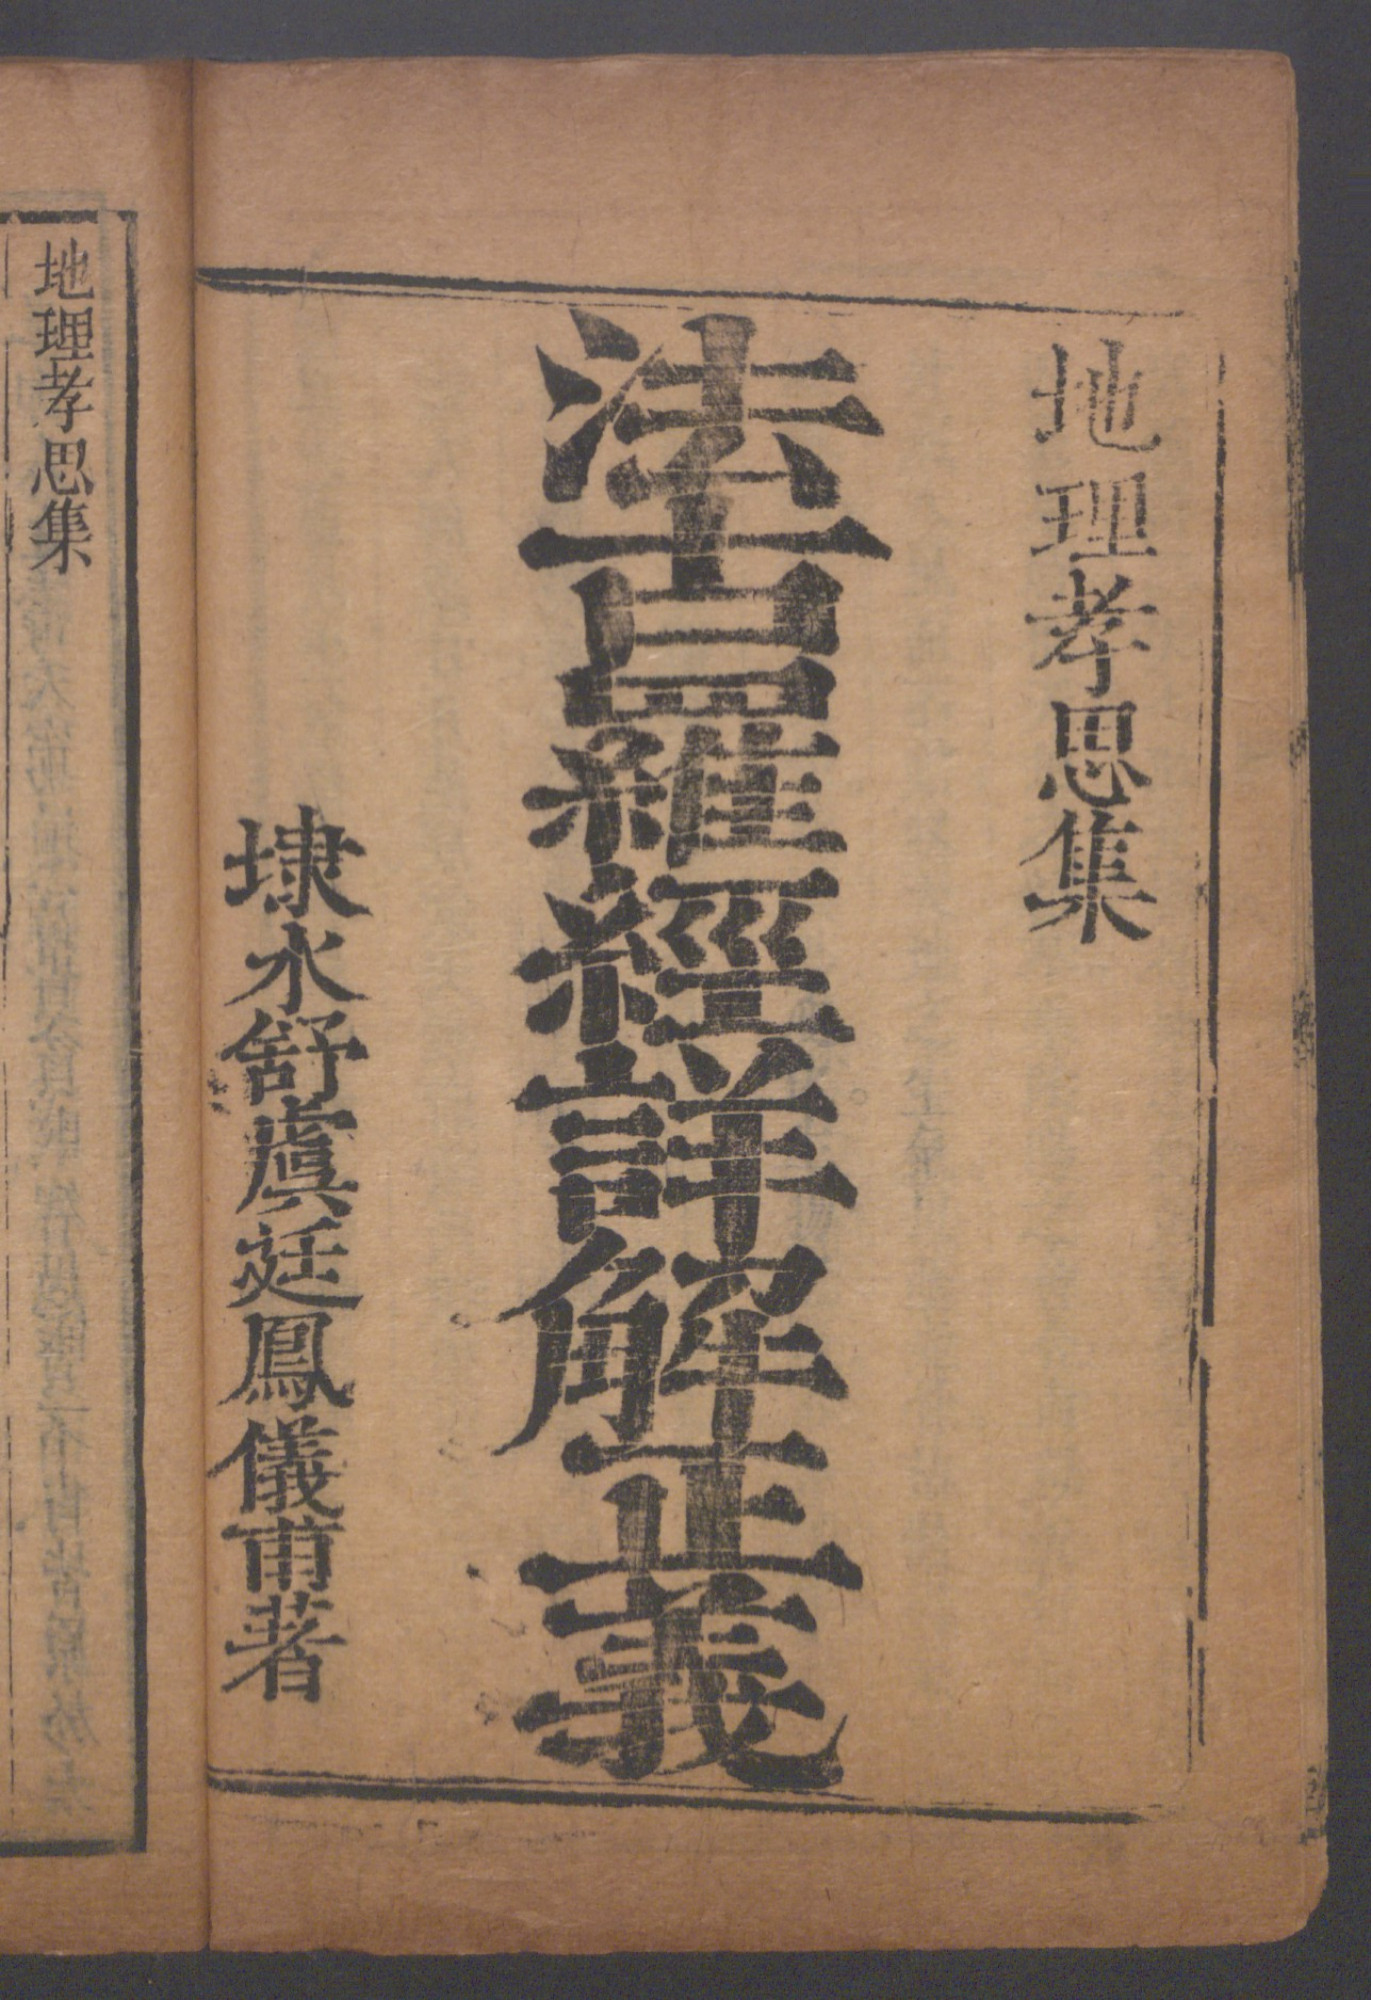 地理孝思集
法古羅經詳解正義
埭水舒虞廷鳳儀甫著
地理孝思集